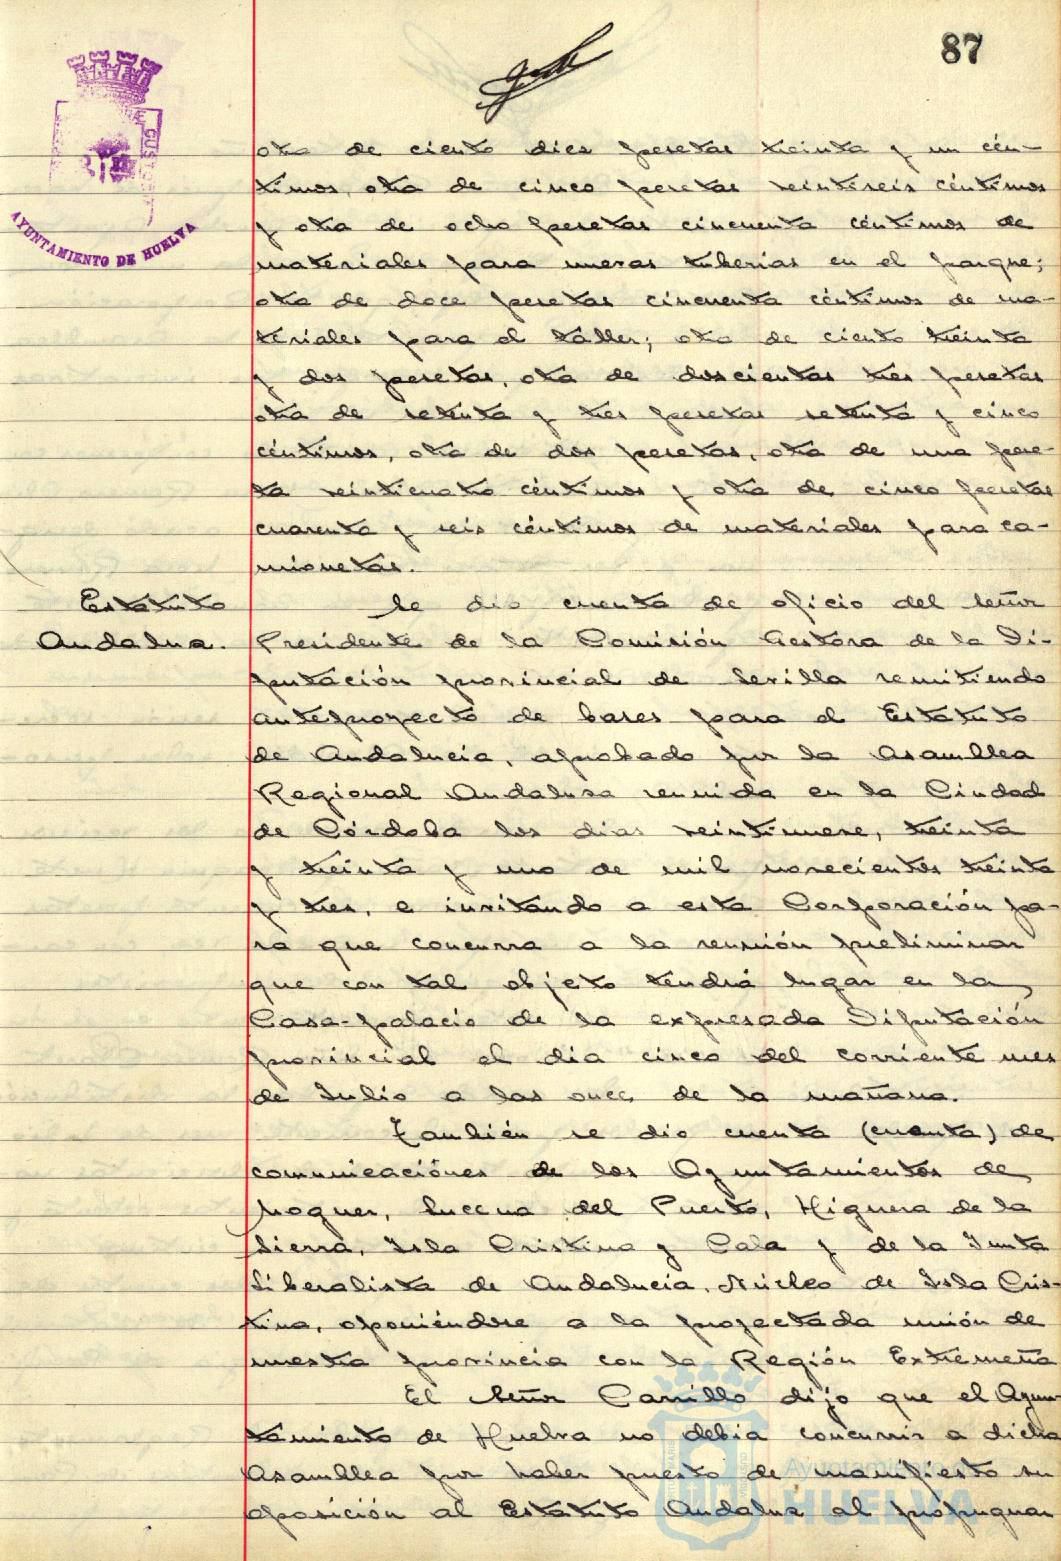 87
AYUNTAMIENTO DE HUELVA
otra de ciento diez pesetas treinta y un cén-
timos, otra de cinco pesetas veintiseis céntimos
y otra de ocho pesetas cincuenta céntimos de
materiales para nuevas tuberias en el parque;
otra de doce pesetas cincuenta céntimos de ma-
teriales para el taller; otra de ciento treinta
y dos pesetas, otra de doscientas tres pesetas
otra de setenta y tres pesetas setenta y cinco
céntimos, otra de dos pesetas, otra de una pese-
ta veinticuatro céntimos y otra de cinco pesetas
cuarenta y seis céntimos de materiales para ca-
mionetas.
Estatuto
Andaluz.
Se dio cuenta de oficio del Señor
Presidente de la Comisión Gestora de la Di-
putación provincial de Sevilla remitiendo
anteproyecto de bases para el Estatuto
de Andalucia, aprobado por la Asamblea
Regional Andaluza reunida en la Ciudad
de Córdoba los dias veintinueve, treinta
y treinta y uno de mil novecientos treinta
y tres, e invitando a esta Corporación pa-
ra que concurra a la reunión preliminar
que con tal objeto tendrá lugar en la
Casa-palacio de la expresada Diputación
provincial el dia cinco del corriente mes
de Julio a las once de la mañana.
También se dio cuenta (cuenta) de
comunicaciónes de los Ayuntamientos de
Moguer, Lucena del Puerto, Higuera de la
Sierra, Isla Cristina y Cala y de la Junta
Liberalista de Andalucia, Núcleo de Isla Cris-
tina, oponiéndose a la proyectada unión de
nuestra provincia con la Región Extremeña
El Señor Carrillo dijo que el Ayun-
tamiento de Huelva no debia concurrir a dicha
Asamblea por haber puesto de manifiesto su
oposición al Estatuto Andaluz al propugnar
Ayuntamiento de
HUELVA